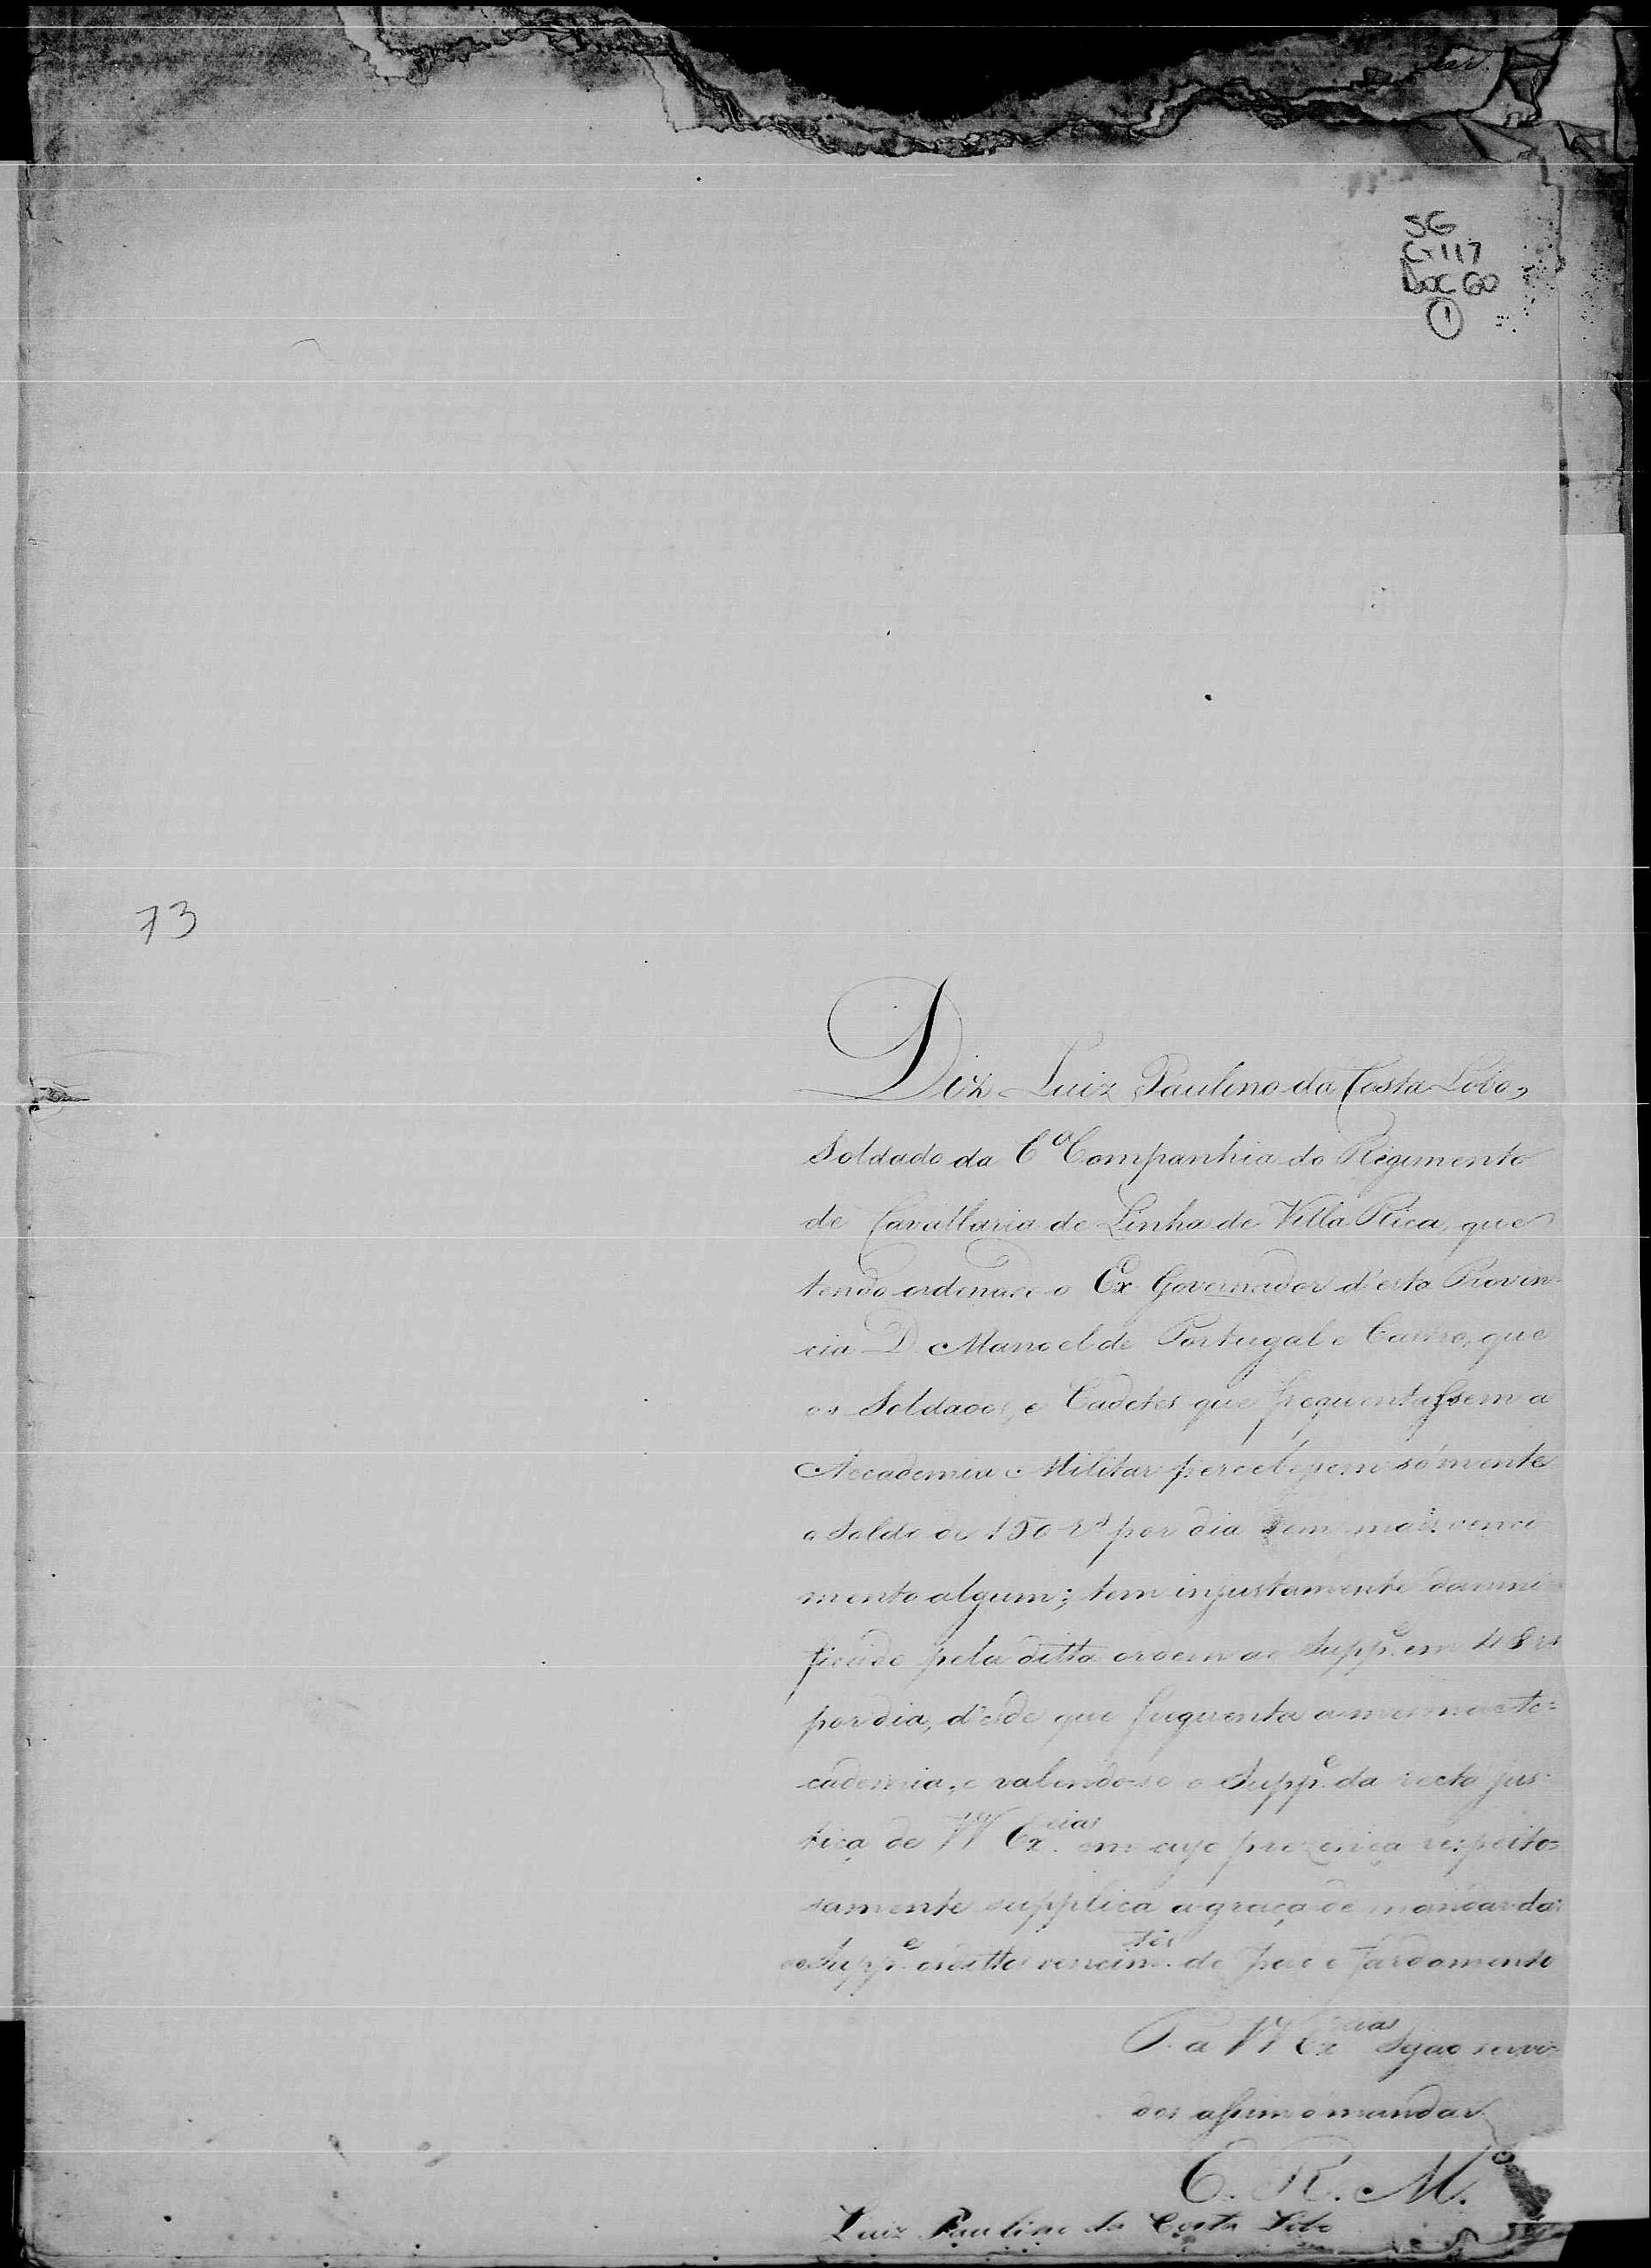 SG
Cx 117
Doc 60
1
73
Diz Luiz Paulino da Costa Lobo,
Soldado da 6ª Companhia do Regimento
de Cavallaria de Linha de Villa Rica, que
tendo ordenado o Ex Governador d'esta Provin-
cia D. Manoel de Portugal e Castro, que
os Soldados, e Cadetes que frequentassem a
Accademia Militar percebessem sómente
o Soldo de 150 rs por dia sem mais venci
mento algum; tem injustamente damni
ficado pela ditta ordem ao Suppe. em 48 rs
por dia, d'esde que frequenta a mesma Ac=
cademia, e valendo-se o Suppe. da recta jus-
tiça de VV Excias. em cuja prezença respeito=
samente supplica a graça de mandar dar
ao Suppe. os dittos vencimtos. de e Fardamento
P. a VV Excias Sejão servi-
dos assim o mandar
E. R. M.ce
Luiz Paulino da Costa Lobo